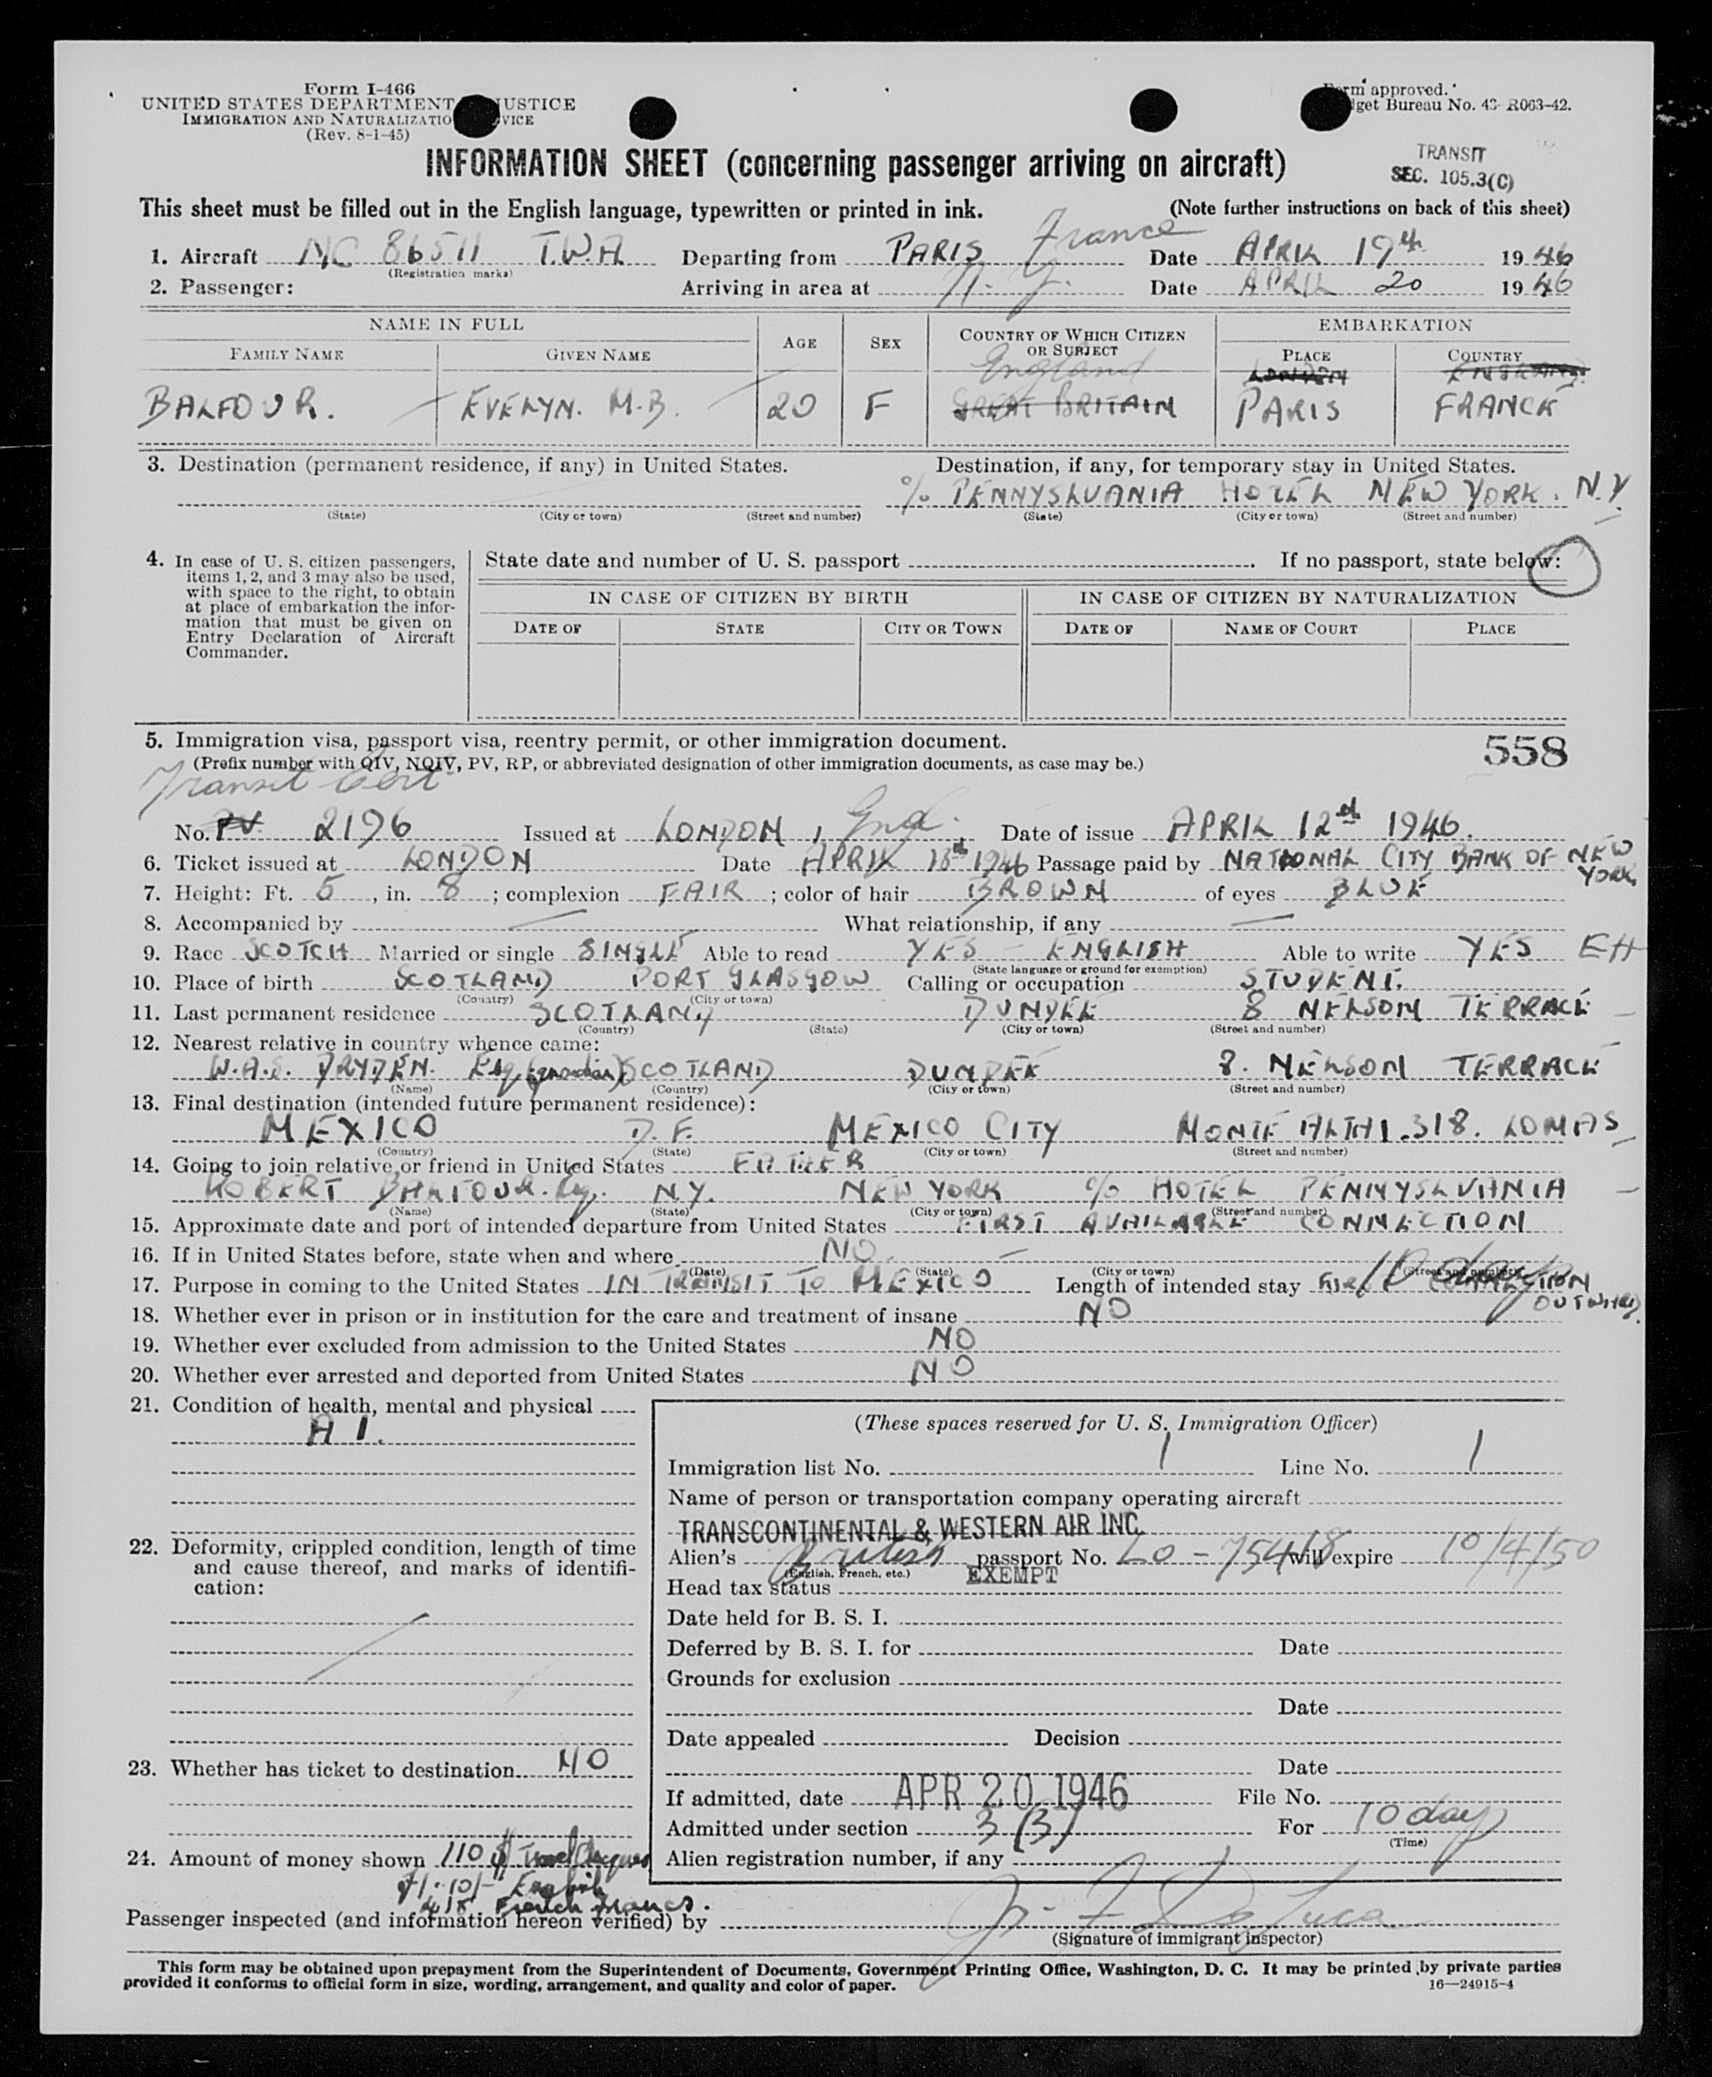 Form I-466
UNITED STATES DEPARTMENT JUSTICE
IMMIGRATION AND NATURALIZATIO VICE
(Rev. 8-1-45)
Form approved.
get Bureau No. 43-R063-42.
INFORMATION SHEET (concerning passenger arriving on aircraft)
TRANSIT
SEC. 105.3(C)
This sheet must be filled out in the English language, typewritten or printed in ink. (Note further instructions on back of this sheet)
1. Aircraft NC 86511 T.W.A Departing from PARIS France Date APRIL 19th 1946
(Registration marks)
2. Passenger: Arriving in area at N. Y. Date APRIL 20 1946
NAME IN FULL AGE SEX COUNTRY OF WHICH CITIZEN OR SUBJECT EMBARKATION
FAMILY NAME GIVEN NAME PLACE COUNTRY
England LONDON ENGLAND
BALFOUR. EVELYN. M.B. 20 F GREAT BRITAIN PARIS FRANCE
3. Destination (permanent residence, if any) in United States. Destination, if any, for temporary stay in United States.
c/o PENNYSLVANIA HOTEL NEW YORK. N.Y.
(State) (City or town) (Street and number) (State) (City or town) (Street and number)
4. In case of U. S. citizen passengers, items 1, 2, and 3 may also be used, with space to the right, to obtain at place of embarkation the information that must be given on Entry Declaration of Aircraft Commander.
State date and number of U. S. passport . If no passport, state below:
IN CASE OF CITIZEN BY BIRTH IN CASE OF CITIZEN BY NATURALIZATION
DATE OF STATE CITY OR TOWN DATE OF NAME OF COURT PLACE
5. Immigration visa, passport visa, reentry permit, or other immigration document. 558
(Prefix number with QIV, NQIV, PV, RP, or abbreviated designation of other immigration documents, as case may be.)
Transit Cert
No. PV 2196 Issued at LONDON, Eng. Date of issue APRIL 12th 1946.
6. Ticket issued at LONDON Date APRIL 18th 1946 Passage paid by NATIONAL CITY BANK OF NEW YORK.
7. Height: Ft. 5, in. 8; complexion FAIR; color of hair BROWN of eyes BLUE
8. Accompanied by — What relationship, if any —
9. Race SCOTCH Married or single SINGLE Able to read YES - ENGLISH Able to write YES EH
(State language or ground for exemption)
10. Place of birth SCOTLAND PORT GLASGOW Calling or occupation STUDENT.
(Country) (City or town)
11. Last permanent residence SCOTLAND DUNDEE 8 NELSON TERRACE
(Country) (State) (City or town) (Street and number)
12. Nearest relative in country whence came:
W.A.S. DRYDEN. Esq (guardian) SCOTLAND DUNDEE 8. NELSON TERRACE
(Name) (Country) (City or town) (Street and number)
13. Final destination (intended future permanent residence):
MEXICO D.F. MEXICO CITY MONTE ALTAI.318. LOMAS
(Country) (State) (City or town) (Street and number)
14. Going to join relative or friend in United States FATHER
ROBERT BALFOUR. Esq. N.Y. NEW YORK c/o HOTEL PENNYSLVANIA
(Name) (State) (City or town) (Street and number)
15. Approximate date and port of intended departure from United States FIRST AVAILABLE CONNECTION
16. If in United States before, state when and where NO. —
(Date) (State) (City or town) (Street and number)
17. Purpose in coming to the United States IN TRANSIT TO MEXICO Length of intended stay AIR CONNECTION OUTWARD. 10 days
18. Whether ever in prison or in institution for the care and treatment of insane NO
19. Whether ever excluded from admission to the United States NO
20. Whether ever arrested and deported from United States NO
21. Condition of health, mental and physical
A 1.
22. Deformity, crippled condition, length of time and cause thereof, and marks of identification:
23. Whether has ticket to destination NO
24. Amount of money shown 110 $ Travel Cheques
£1.10/- English
415 French francs.
(These spaces reserved for U. S. Immigration Officer)
Immigration list No. 1 Line No. 1
Name of person or transportation company operating aircraft
TRANSCONTINENTAL & WESTERN AIR INC.
Alien's British passport No. LO-75418 will expire 10/4/50
(English, French, etc.)
Head tax status EXEMPT
Date held for B. S. I.
Deferred by B. S. I. for Date
Grounds for exclusion
Date
Date appealed Decision
Date
If admitted, date APR 20 1946 File No.
Admitted under section 3 (3) For 10 days
(Time)
Alien registration number, if any
Passenger inspected (and information hereon verified) by J. F. DeLuca
(Signature of immigrant inspector)
This form may be obtained upon prepayment from the Superintendent of Documents, Government Printing Office, Washington, D. C. It may be printed by private parties
provided it conforms to official form in size, wording, arrangement, and quality and color of paper. 16—24915-4